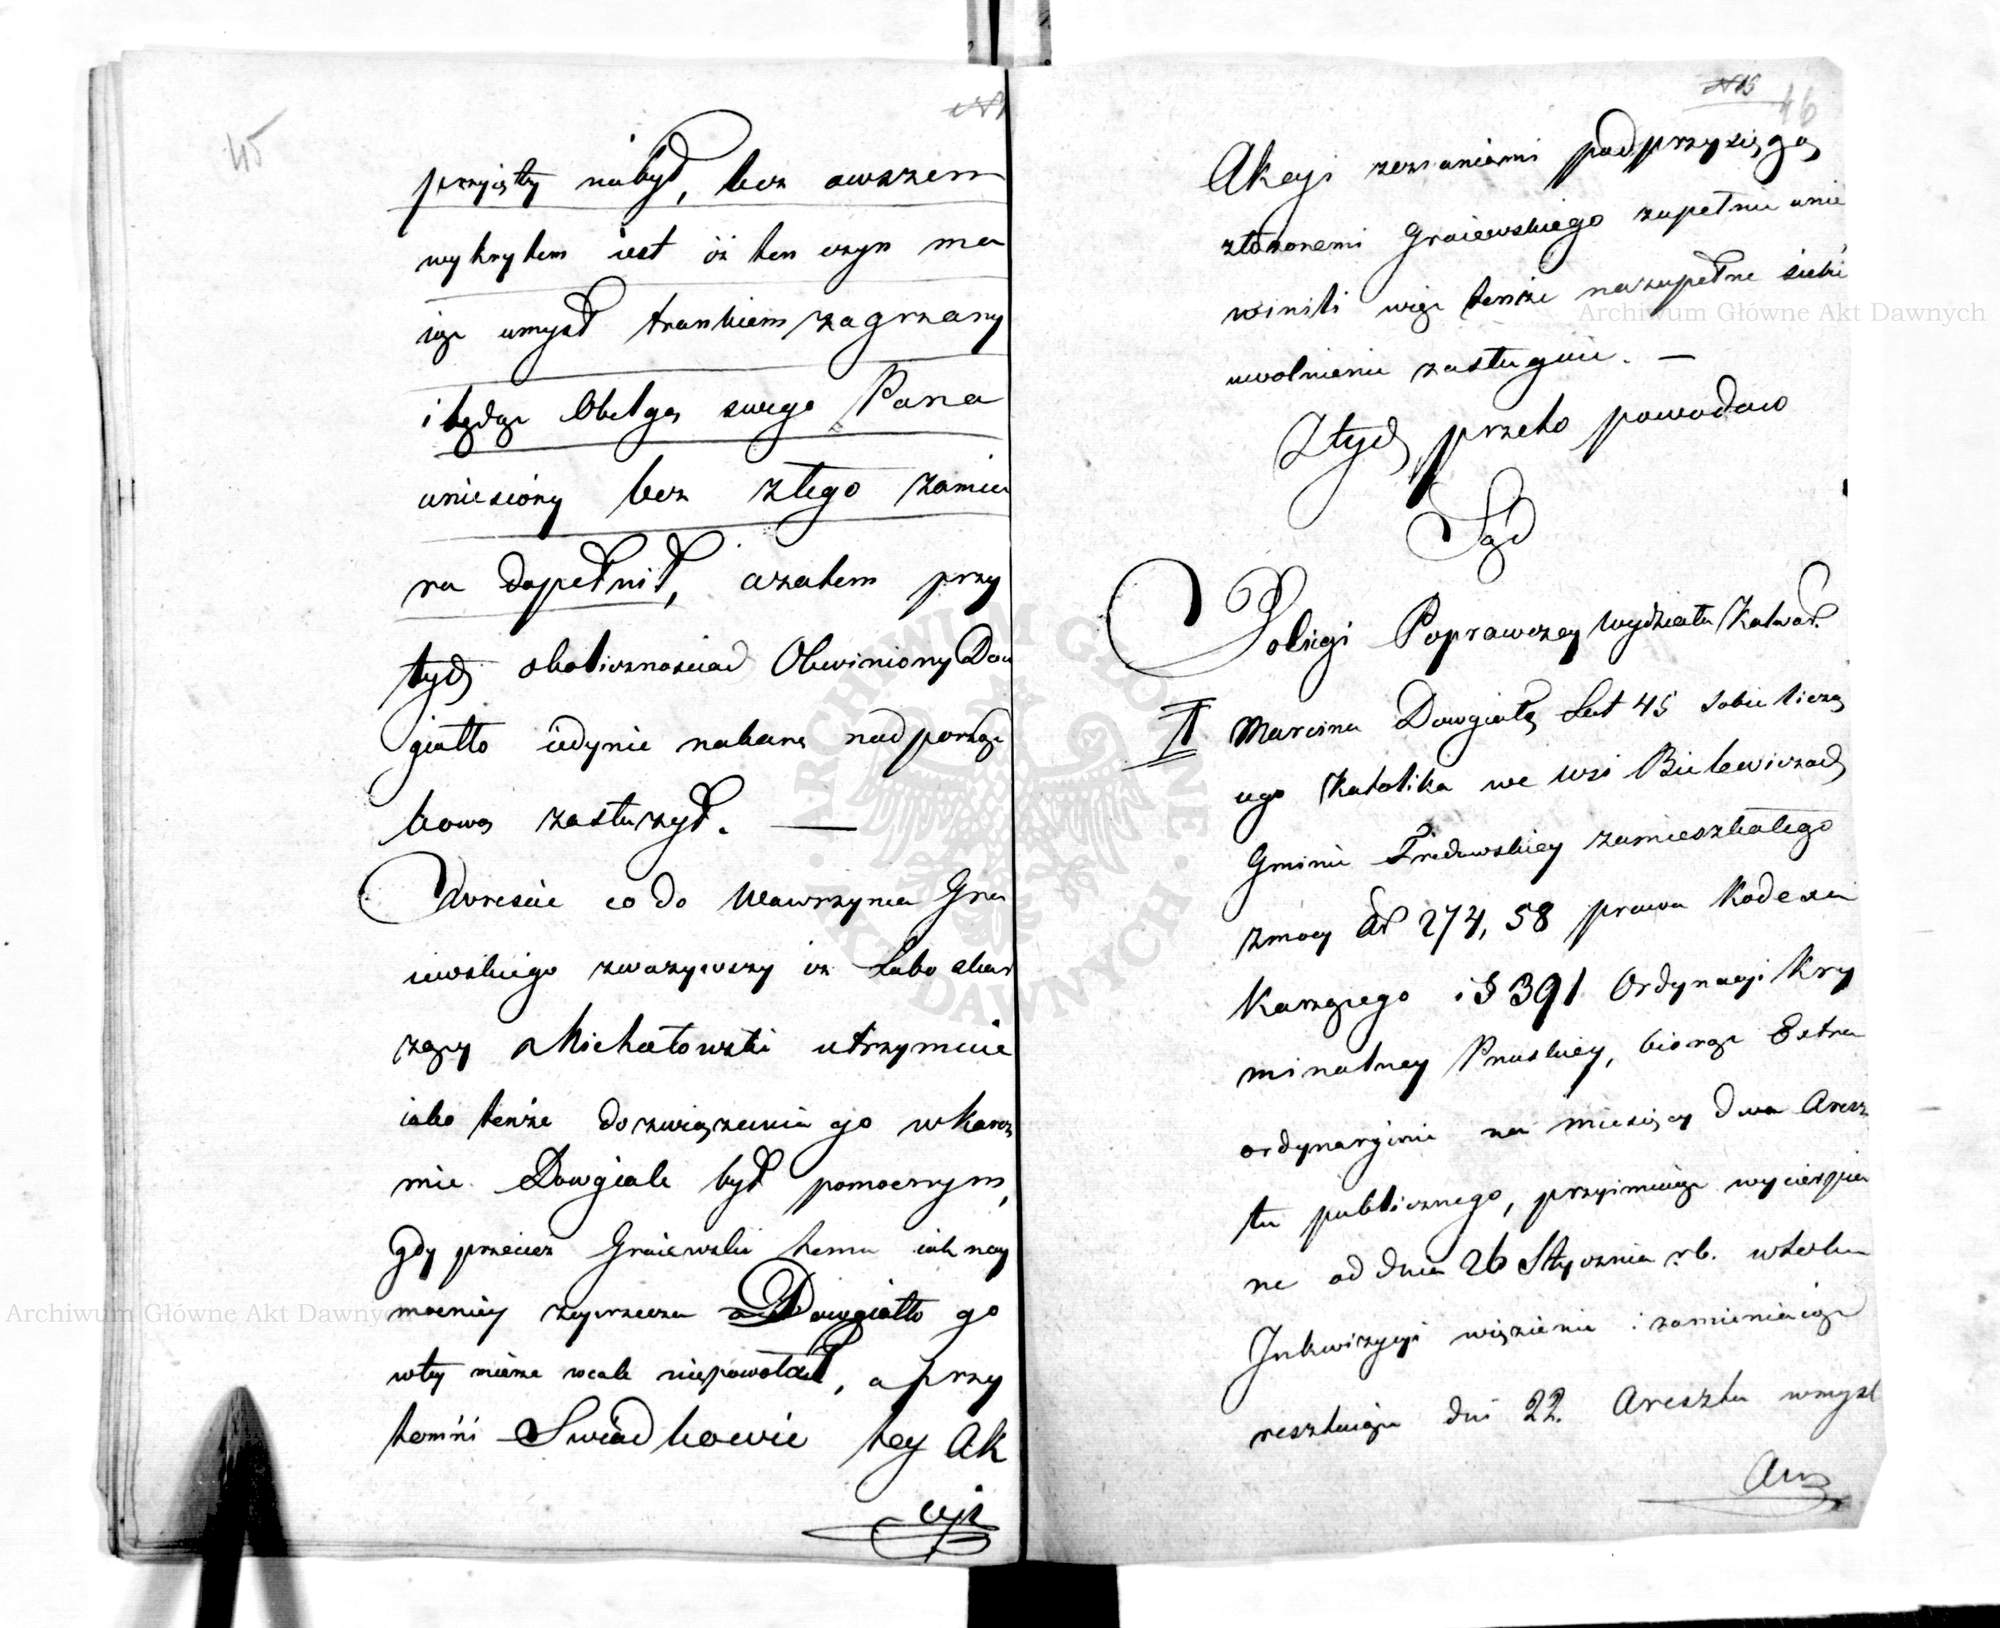 45
przyięty nabył, lecz owszem
wykrytem iest iż ten czyn ma
iąc umysł trunkiem zagrzany
i będąc Obelgą swego Pana
uniesiony bez złego zamia
ru dopełnił, azatem przy
tych okolicznościach Obwiniony Dow
giałło iedynie na karę nadporząd
kową zasłużył. —
Wreście co do Wawrzyńca Gra
iewskiego zważywszy iż Lubo skar
zący Michałowski utrzymuie
iako tenże do związania go w karcz
mie Dowgiale był pomocnym,
gdy przecież Graiewski temu iak nay
mocniey zaprzecza Dowgiałło go
wtey mierze wcale niepowołał, a przy
tomni Swiadkowie tey Ak
cyi
N 15
46
Akcyi zeznaniami pod przysięgą
złożonemi Graiewskiego zupełnie unie
winili więc tenże na zupełne siebie
uwolnienie zasługuie. —
Z tych przeto powodow
Sąd
Policyi Poprawczey Wydziału Kalwar.
I Marcina Dowgiałłę Lat 45 sobie licząc
ego Katolika we wsi Butewiczach
Gminie Fredowskiey zamieszkałego
zmocy Art 274, 58 prawa Kodexu
Karzącego i § 391 Ordynacyi Kry
minalney Pruskiey, biorąc Extra
ordynaryinie na miesięcy dwa Aresz
tu publicznego, przyimuiąc wycierpia
ne od dnia 26 Stycznia r.b. wtoku
Inkwizycyi więzienie i zamieniaiąc
resztuiące dni 22. Aresztu wmysl
Art
Archiwum Główne Akt Dawnych
Archiwum Główne Akt Dawnych
ARCHIWUM GŁÓWNE AKT DAWNYCH